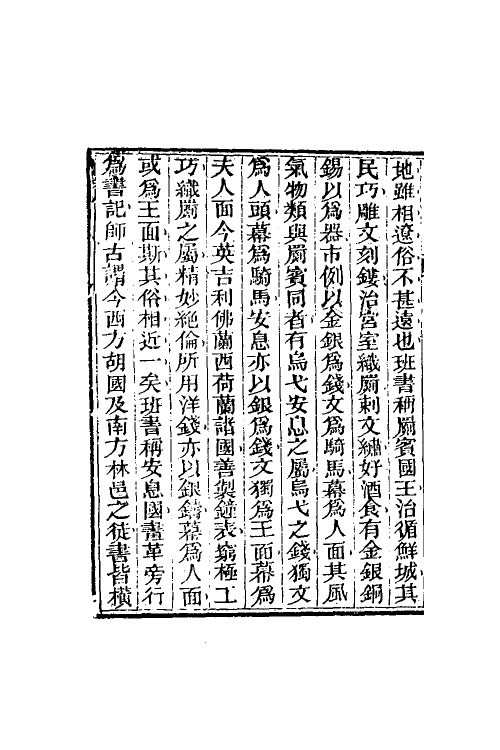 地雖相遼俗不甚遠也班書稱罽賓國王治循鮮城其
民巧雕文刻鏤治宮室織罽刺文繡好酒食有金銀銅
錫以爲器市例以金銀爲錢文爲騎馬幕爲人面其風
氣物類與罽賓同者有烏弋安息之屬烏弋之錢獨文
爲人頭幕爲騎馬安息亦以銀爲錢文獨爲王面幕爲
夫人面今英吉利佛蘭西荷蘭諸國善製鐘表窮極工
巧織罽之屬精妙絶倫所用洋錢亦以銀鑄幕爲人面
或爲王面斯其俗相近一矣班書稱安息國畫革旁行
爲書記師古謂今西方胡國及南方林邑之徒書皆橫